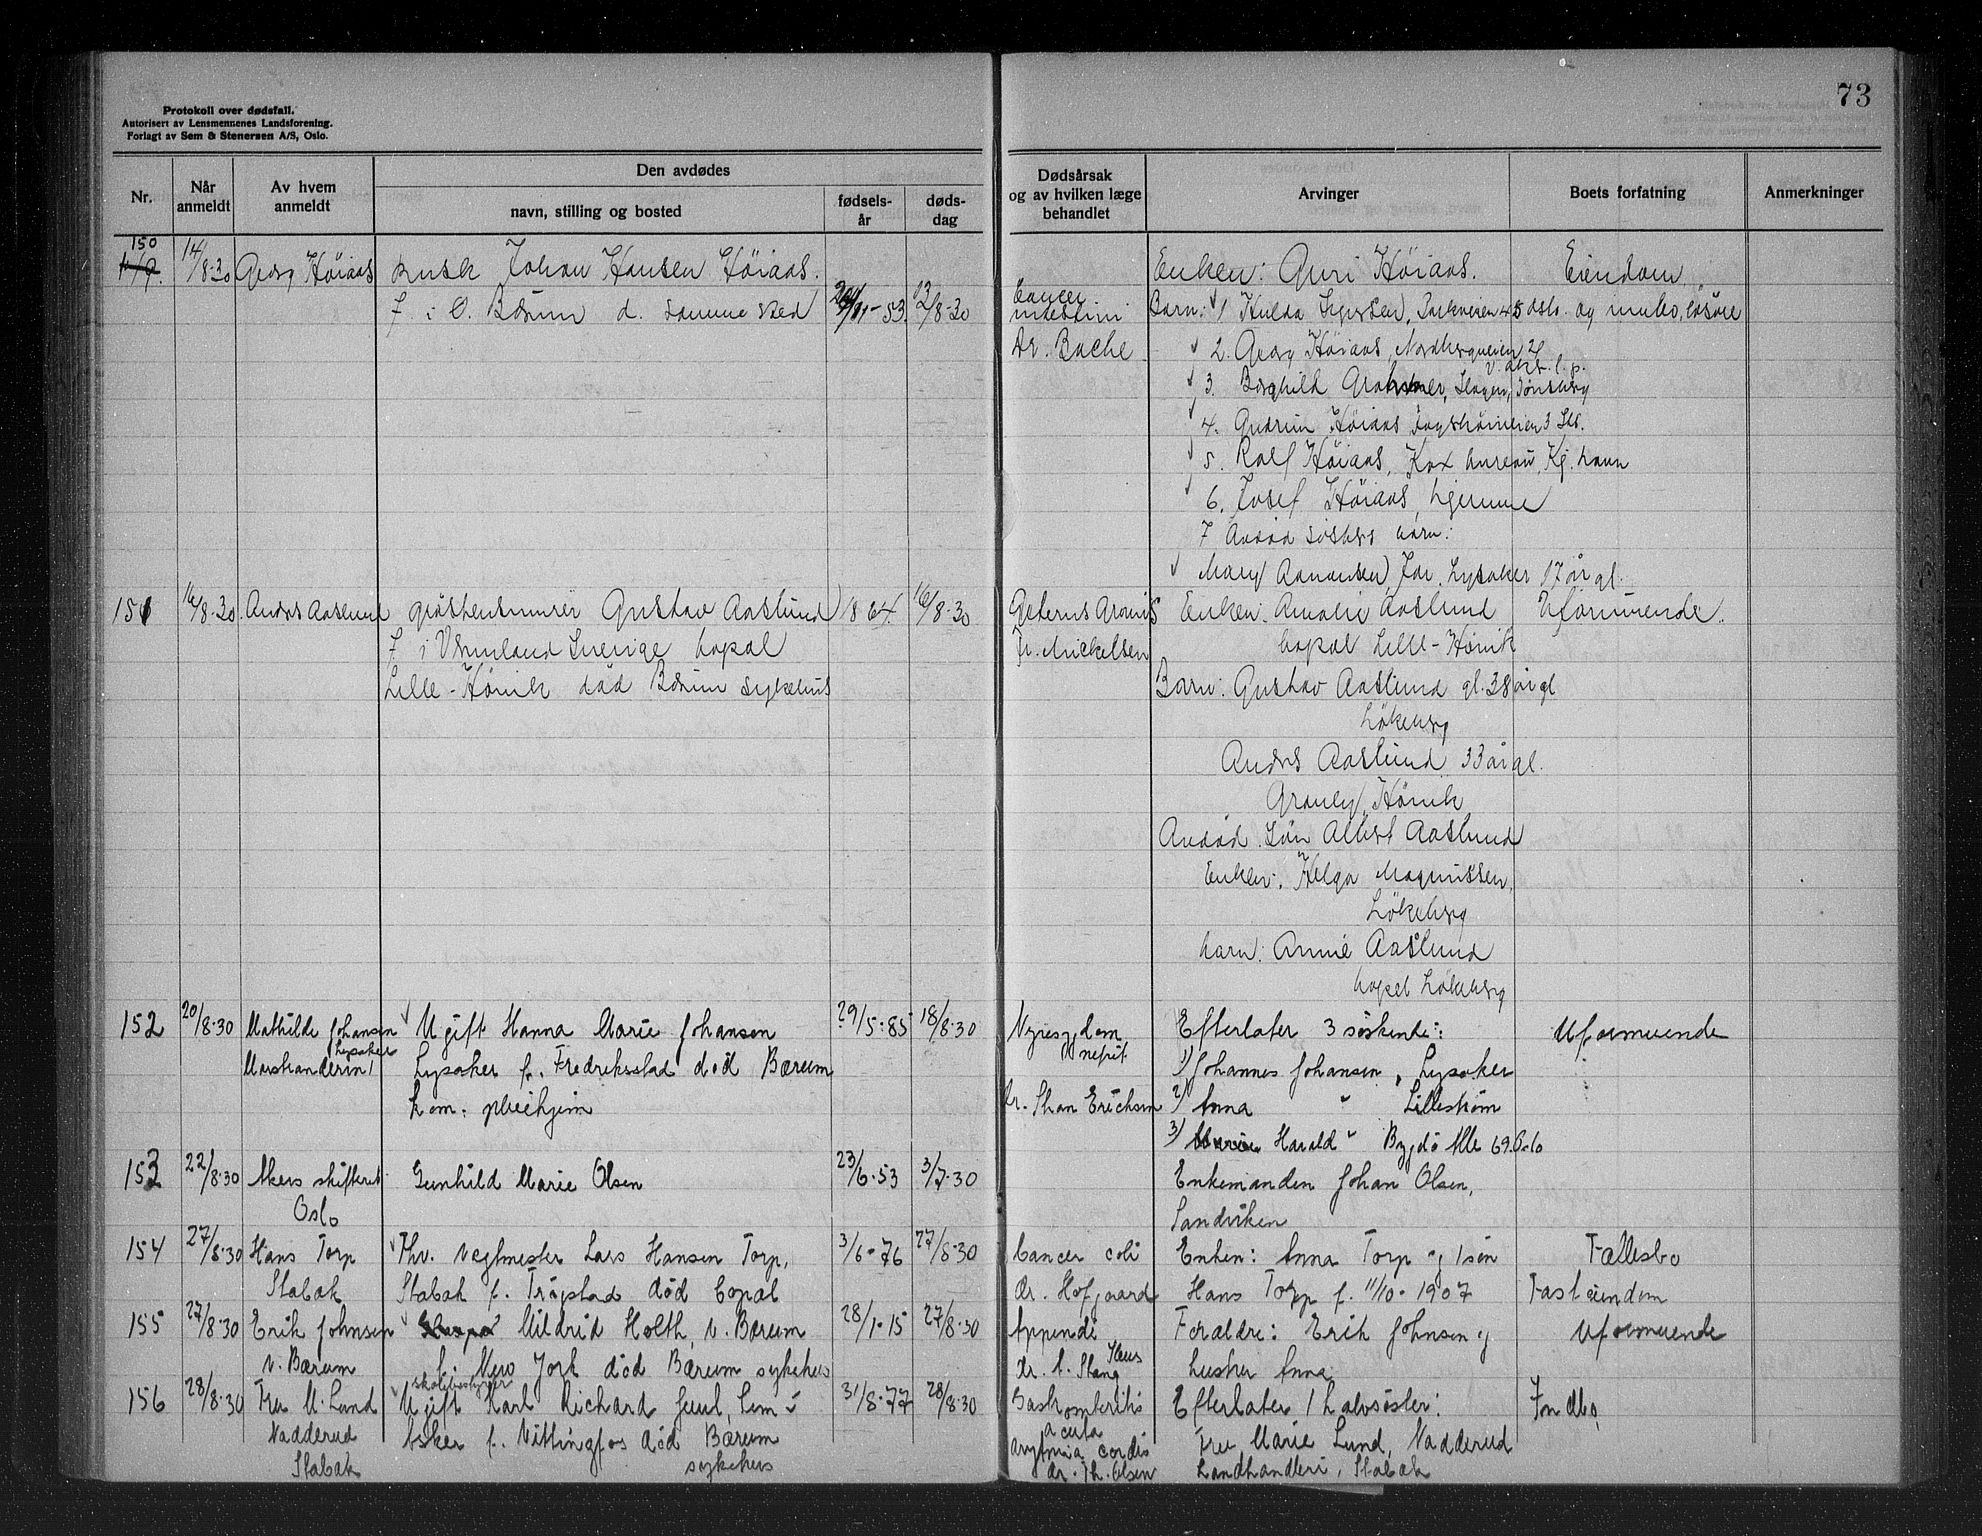 Protokoll over dødsfall.
Autorisert av Lensmennenes Landsforening.
Forlagt av Sem & Stenersen A/S, Oslo.
73
Nr.
Når anmeldt
Av hvem anmeldt
Den avdødes
navn, stilling og bosted
fødselsår
dødsdag
Dødsårsak og av hvilken læge behandlet
Arvinger
Boets forfatning
Anmerkninger
150
14/8-30 Georg Höiaas
Johan Hansen Höiaas.
f. i Ö. Bærum d. samme sted
53. 12/8-30
Cancer
Dr. Bache
Enken: Guri Höiaas.
Barn: 1 Hulda 45 Oslo.
2. Georg Höiaas, Nordbergveien
3. Borghild Slagen, Tönsberg
4. Gudrun Höiaas 3
5. Rolf Höiaas, Kox bureau, Kj.havn
6. Josef Höiaas, hjemme
7 Avdöd søsters barn:
Mary Aamansen, Jar, Lysaker 17 år gl.
Eiendom
og innbo, løsøre
151 16/8-30. Anders Aaslund
Gustav Aaslund 1864. 16/8-30
f. i Vermland Sverige bopæl
Lille-Hönik död Bærum sykehus
Dr. Mickelsen
Enken: Amalie Aaslund Uformuende.
bopæl Lille-Hönik
Barn: Gustav Aaslund gl. 38 år gl
Lökeberg
Anders Aaslund 33 år gl.
Hönik
Avdöd. Sön Albert Aaslund
Enken: Helga Magnussen,
Lökeberg
barn: Annie Aaslund
bopæl Lökeberg
152 20/8-30 Mathilde Johansen
Lysaker
Ugift Hanna Marie Johansen 29/5-85 18/8-30
Lysaker f. Fredriksstad död Bærum
kom. pleiehjem
Nyresygdom
nefrit
Dr. Than Erichsen
Efterlater 3 söskende:
1) Johannes Johansen, Lysaker
2) Anna " Lilleström
3) Harald " Bygdö Alle 69.
Uformuende
153 22/8-30 Akers skifteret
Oslo
Gunhild Marie Olsen 23/6-53 3/7-30
Enkemanden Johan Olsen,
Sandviken
154 27/8-30 Hans Torp
Stabæk
Fhv. vegtmester Lars Hansen Torp, 3/6-76 27/8-30
Stabæk f. Trögstad död bopæl
Cancer coli
Dr. Hofgaard
Enken: Anna Torp og 1 sön
Hans Torp f. 11/10-1907
Fællesbo
Fast eiendom
155 27/8-30 Erik Johnsen
V. Bærum
Mildrid Holth, V. Bærum 28/1-15 27/8-30
f. i New York död Bærum sykehus
Appendi
Dr. C. Stang
Forældre: Erik Johnsen og
hustru Anna
Uformuende
156 28/8-30 Fru M. Lund
Nadderud
Stabæk
Ugift skolebestyrer Karl Richard Juul, 31/8-77 28/8-30
Asker f. Vittingfos död Bærum
sykehus
Gastroenteritis
acuta
arytmia cordis
Dr. Th. Olsen
Efterlater 1 halvsøster:
Fru Marie Lund, Nadderud
Landhandleri, Stabæk